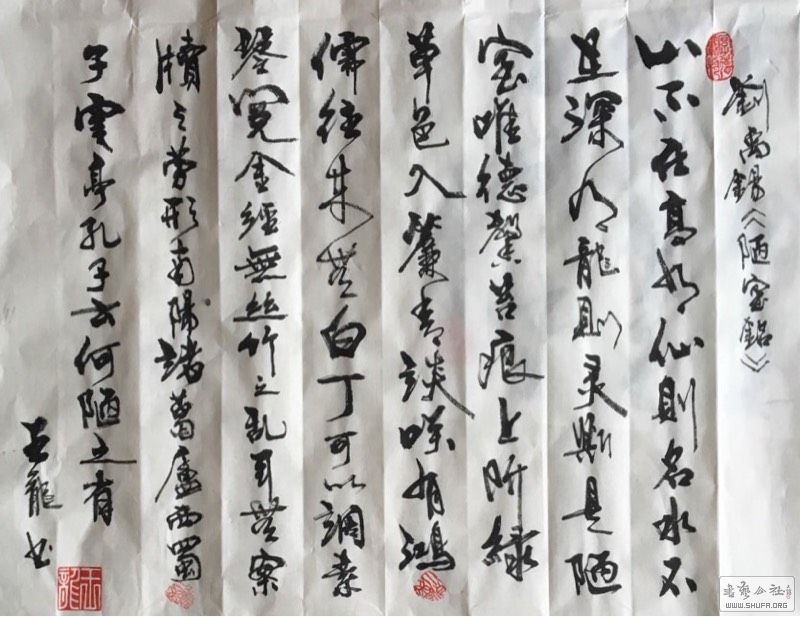 劉禹錫《陋室銘》
山不在高有仙則名水不
在深有龍則灵斯是陋
室唯德馨苔痕上阶緑
草色入簾青談咲有鴻
儒往来无白丁可以調素
琴閱金經無絲竹之乱耳无案
牘之劳形南陽諸葛廬西蜀
子雲亭孔子云何陋之有
王龍书
王龍
书艺公社
WWW.SHUFA.ORG